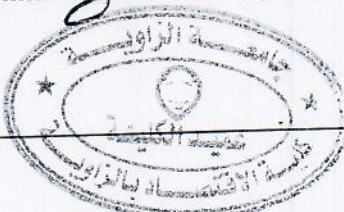 جامعة الزاوية
عميد الكلية
كلية الاقتصاد بالزاوية